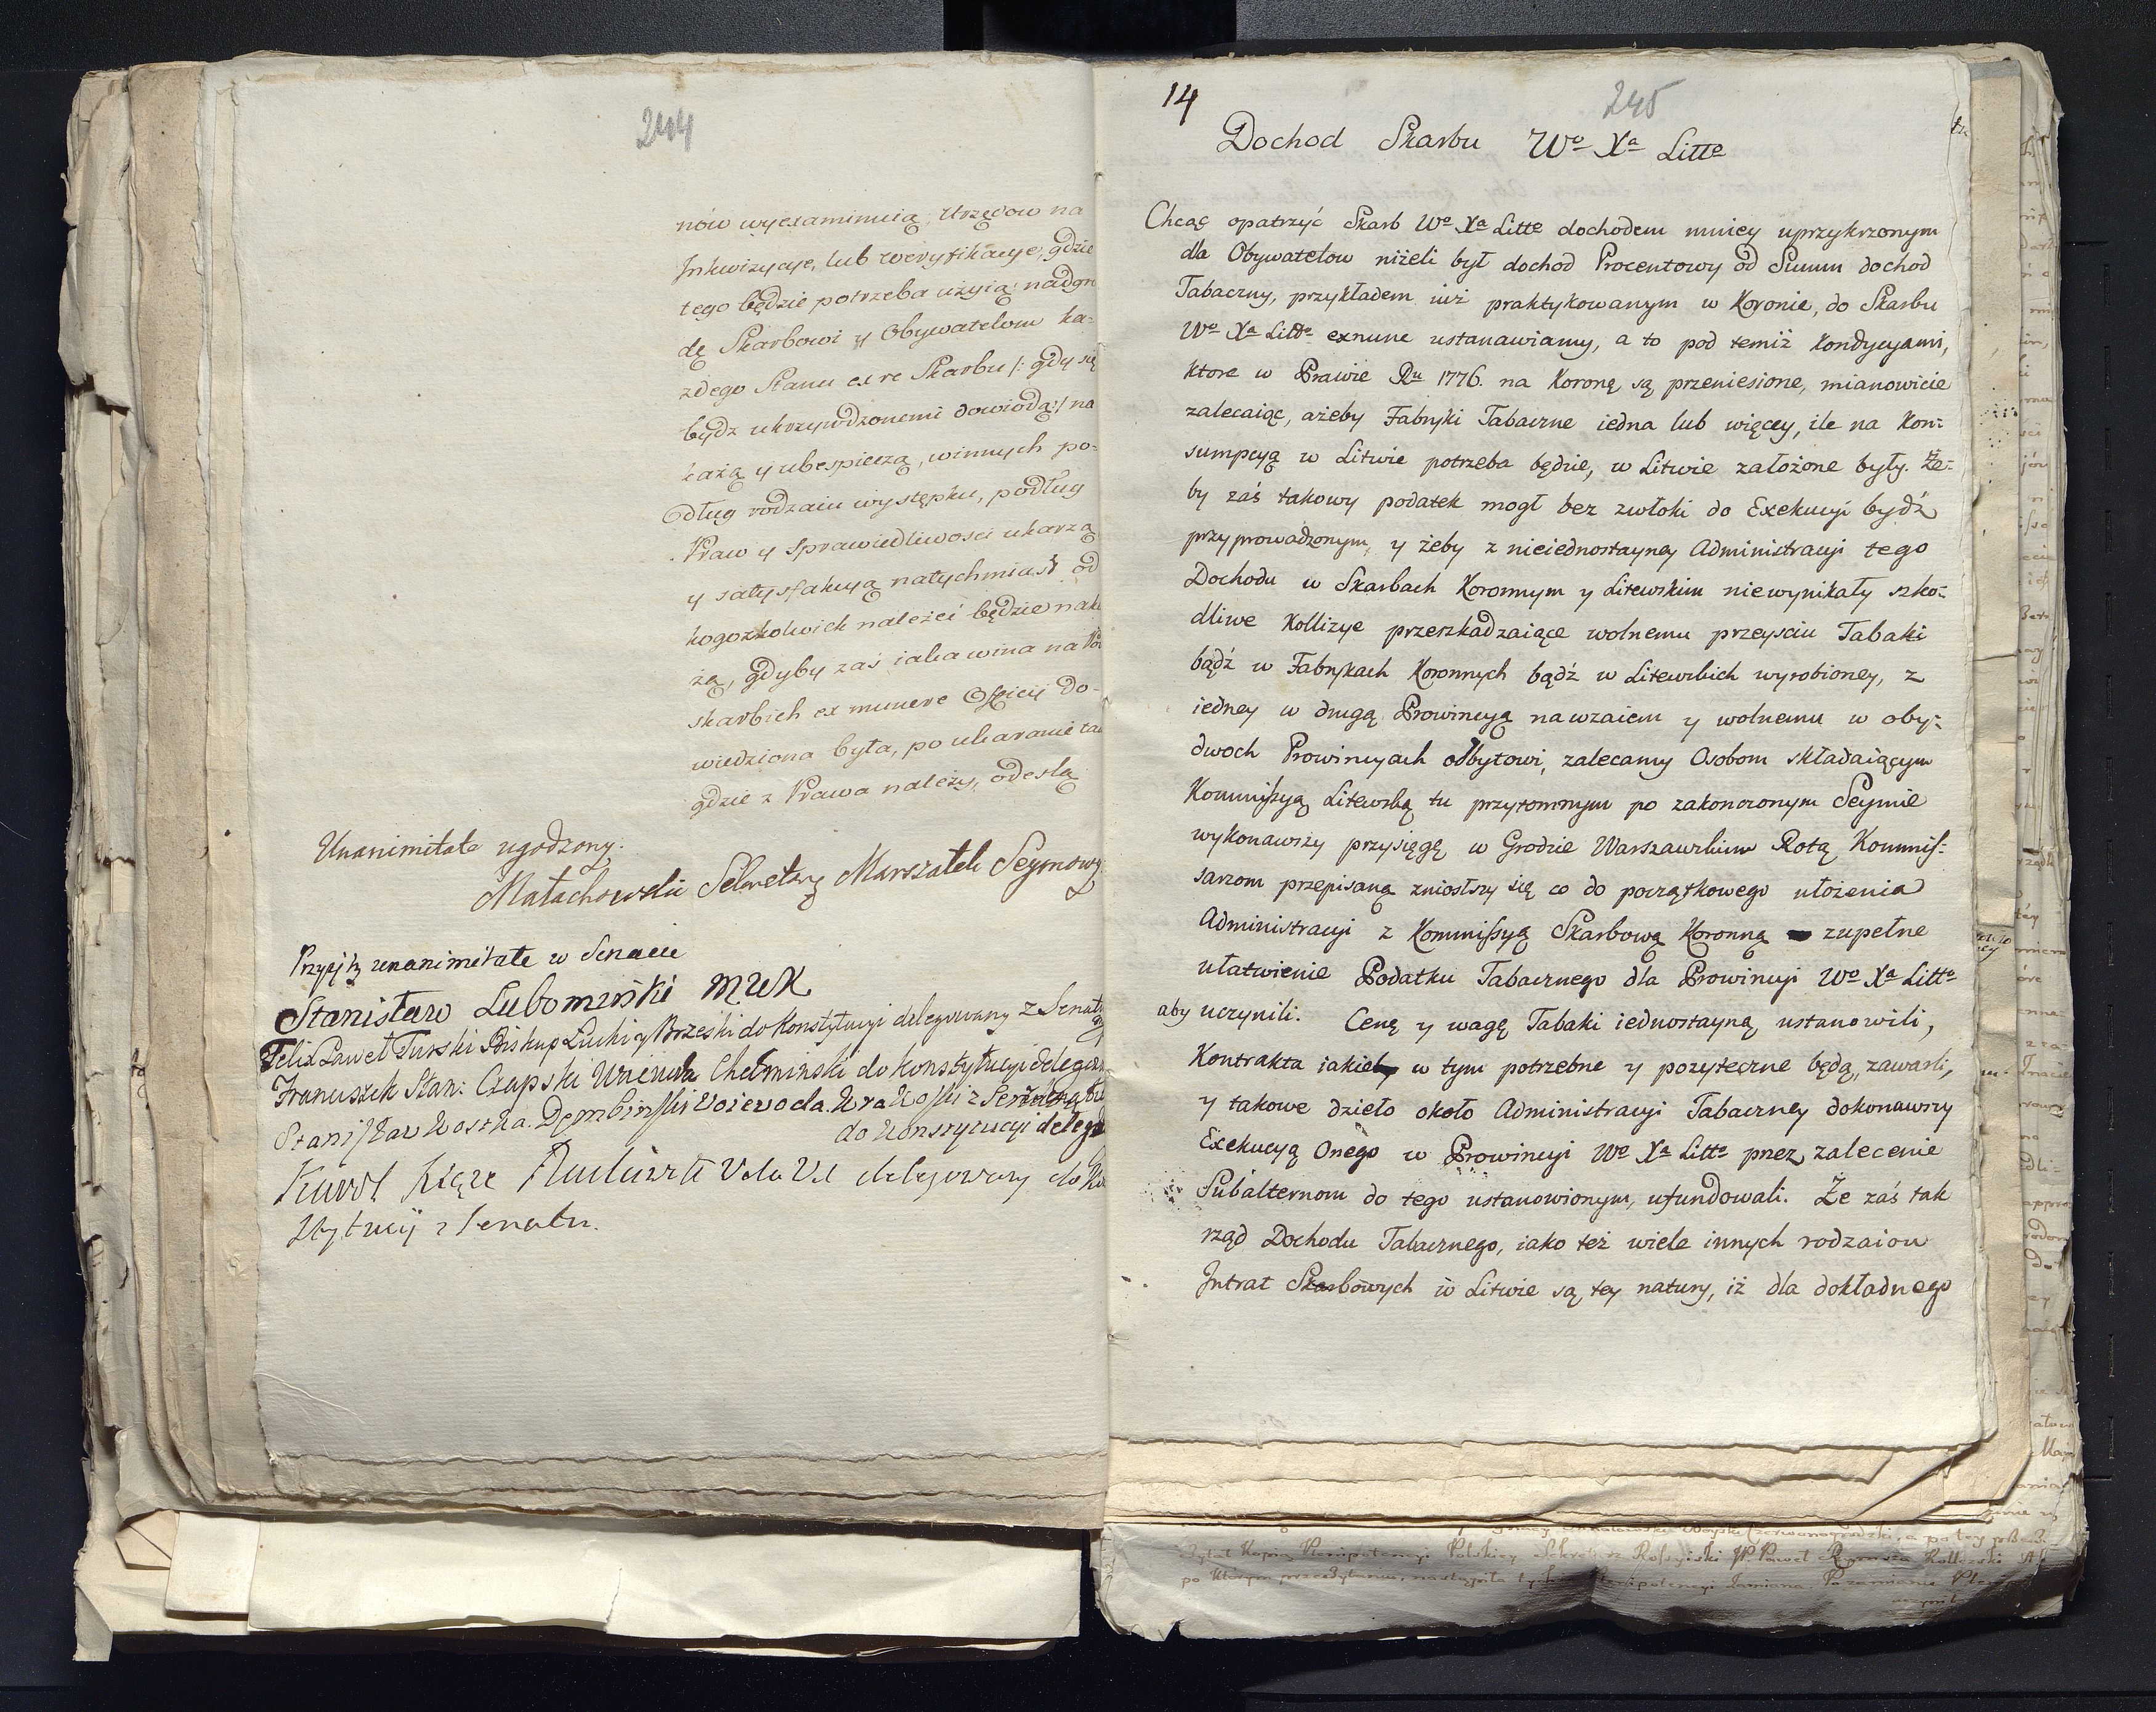 244
nów wyexaminuią, Urzędow na
Inkwizycye, lub weryfikacye, gdzie
tego będzie potrzeba użyią: nadgro
dę Skarbowi y Obywatelom ka-
zdego Stanu ex re Skarbu /: gdy się
bydz ukrzywdzonemi dowiodą:/ na
każą y ubespieczą, winnych po-
dług rodzaiu występku, podług
Praw y Sprawiedliwosci ukarzą
y satysfakcyą natychmiast od
kogożkolwiek należeć będzie naka
żą, gdyby zaś iaka wina na Pod
skarbich ex munere Officij do-
wiedziona była, po ukaranie tam
gdzie z Prawa należy, odeslą
Unanimitate ugodzony.
Małachowski Sekretarz Marszałek Seymowy
Przyięty unanimitate w Senacie
Stanisław Lubomirski MWK
Felix Paweł Turski Biskup Łucki y Brzeski do Konstytucyi delegowany z Senatu
Franciszek Stan: Czapski Woiewoda Chełminski do konstytucyi delegow
Stanisław Kostka Dembinski Woiewoda Krakoski z Senatu
do Konstytucyi delego
Karol Xiąże Radziwiłł delegowany do Ko
stytucij z Senatu.
14
245
Dochod Skarbu Wo Xa Litto
Chcąc opatrzyć Skarb Wo Xa Litto dochodem mniey uprzykrzonym
dla Obywatelow niżeli był dochod Procentowy od Summ dochod
Tabaczny, przykładem iuż praktykowanym w Koronie, do Skarbu
Wo Xa Litto exnunc ustanawiamy, a to pod temiż Kondycyami,
ktore w Prawie Ru 1776. na Koronę są przeniesione, mianowicie
zalecaiąc, ażeby Fabryki Tabaczne iedna lub więcey, ile na Kon-
sumpcyą w Litwie potrzeba będzie, w Litwie założone były. Że-
by zaś takowy podatek mogł bez zwłoki do Exekucyi bydź
przyprowadzonym, y żeby z nieiednostayney Administracyi tego
Dochodu w Skarbach Koronnym y Litewskim niewynikały szko-
dliwe Kollizye przeszkadzaiące wolnemu przeysciu Tabaki
bądź w Fabrykach Koronnych bądź w Litewskich wyrobioney, z
iedney w drugą Prowincyą nawzaiem y wolnemu w oby-
dwoch Prowincyach odbytowi, zalecamy Osobom składaiącym
Kommissyą Litewską tu przytomnym po zakonczonym Seymie
wykonawszy przysięgę w Grodzie Warszawskim Rotą Kommis-
sarzom przepisaną zniosłszy się co do początkowego ułożenia
Administracyi z Kommissyą Skarbową Koronną zupełne
ułatwienie Podatku Tabacznego dla Prowincyi Wo Xa Litto
aby uczynili. Cenę y wagę Tabaki iednostayną ustanowili,
Kontrakta iakie w tym potrzebne y pozyteczne będą, zawarli,
y takowe dzieło około Administracyi Tabaczney dokonawszy
Exekucyą Onego w Prowincyi Wo Xa Litto przez zalecenie
Subalternom do tego ustanowionym, ufundowali. Że zaś tak
rząd Dochodu Tabacznego, iako też wiele innych rodzaiow
Intrat Skarbowych w Litwie są tey natury, iż dla dokładnego